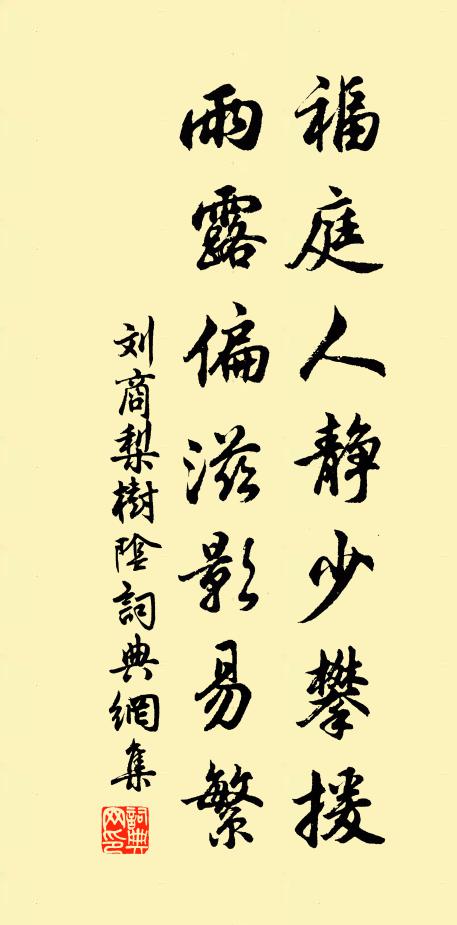 福庭人靜少攀援
雨露偏滋影易繁
刘商梨樹陰詞典網集
詞典网印